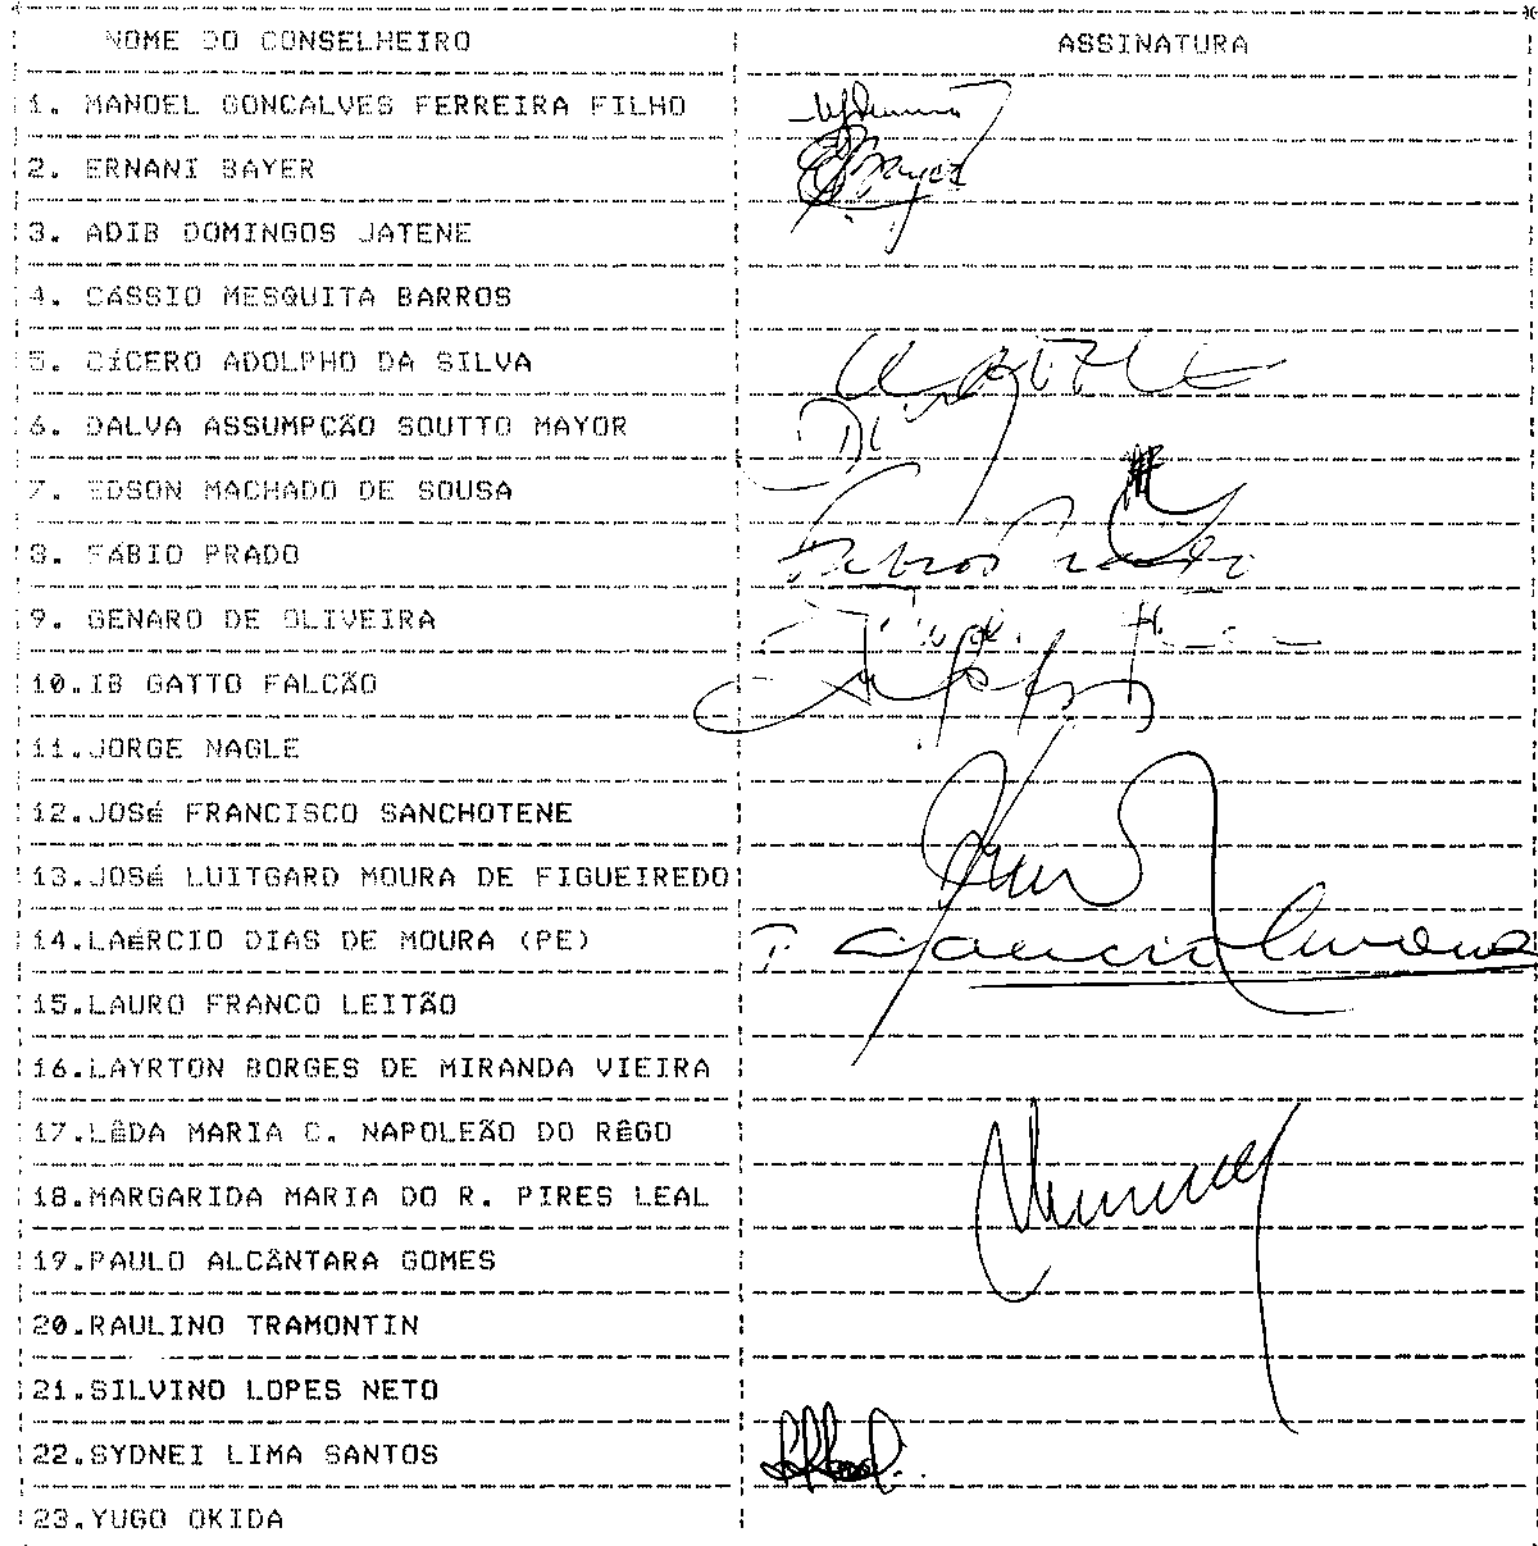 NOME DO CONSELHEIRO ASSINATURA
1. MANOEL GONCALVES FERREIRA FILHO
2. ERNANI BAYER Bayer
3. ADIB DOMINGOS JATENE
4. CÁSSIO MESQUITA BARROS
5. CÍCERO ADOLPHO DA SILVA
6. DALVA ASSUMPCÃO SOUTTO MAYOR
7. EDSON MACHADO DE SOUSA
8. FÁBIO PRADO Fabio Prado
9. GENARO DE OLIVEIRA
10.IB GATTO FALCÃO
11.JORGE NAGLE
12.JOSé FRANCISCO SANCHOTENE
13.JOSé LUITGARD MOURA DE FIGUEIREDO
14.LAéRCIO DIAS DE MOURA (PE)
15.LAURO FRANCO LEITÃO
16.LAYRTON BORGES DE MIRANDA VIEIRA
17.LÊDA MARIA C. NAPOLEÃO DO RÊGO
18.MARGARIDA MARIA DO R. PIRES LEAL
19.PAULO ALCÂNTARA GOMES
20.RAULINO TRAMONTIN
21.SILVINO LOPES NETO
22.SYDNEI LIMA SANTOS
23.YUGO OKIDA